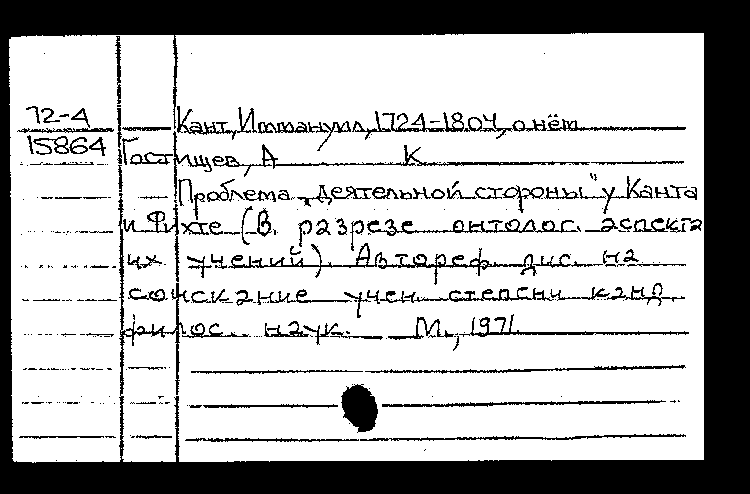 72-4
Кант, Иммануил, 1724-1804, о нём
15864
Гостищев, А К
Проблема „деятельной стороны" у Канта
и Фихте (В. разрезе онтолог. аспекта
их учений). Автореф. дис. на
соискание учен. степени канд.
филос. наук. М., 1971.